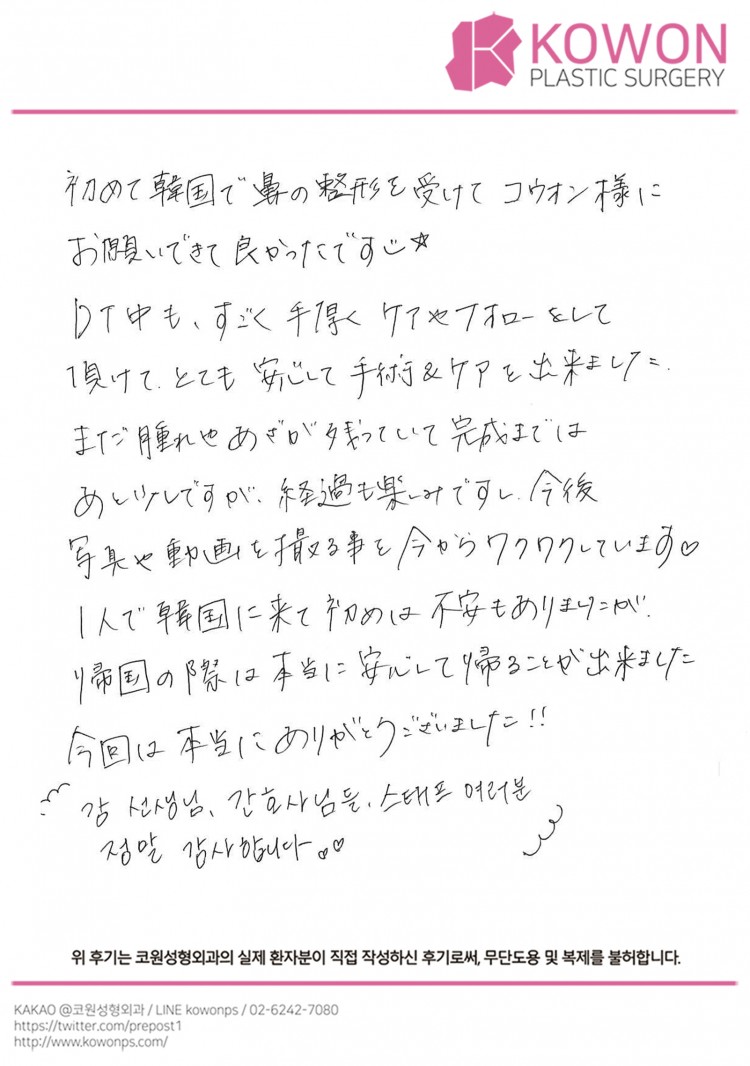 KOWON
PLASTIC SURGERY
初めて韓国で鼻の整形を受けて コウオン様に
お願いできて良かったです☆
DT中も、すごく手厚く ケアやフォローをして
頂けて、とても安心して手術&ケアを出来ました。
まだ腫れやあざが残っていて完成までは
あと少しですが、経過も楽しみですし、今後
写真や動画を撮る事を今からワクワクしています♡
1人で韓国に来て初めは不安もありましたが、
帰国の際は本当に安心して帰ることが出来ました
今回は本当にありがとうございました!!
감 선생님、간호사님들、스태프 여러분
정말 감사합니다 ♡♡
위 후기는 코원성형외과의 실제 환자분이 직접 작성하신 후기로써, 무단도용 및 복제를 불허합니다.
KAKAO @코원성형외과 / LINE kowonps / 02-6242-7080
https://twitter.com/prepost1
http://www.kowonps.com/